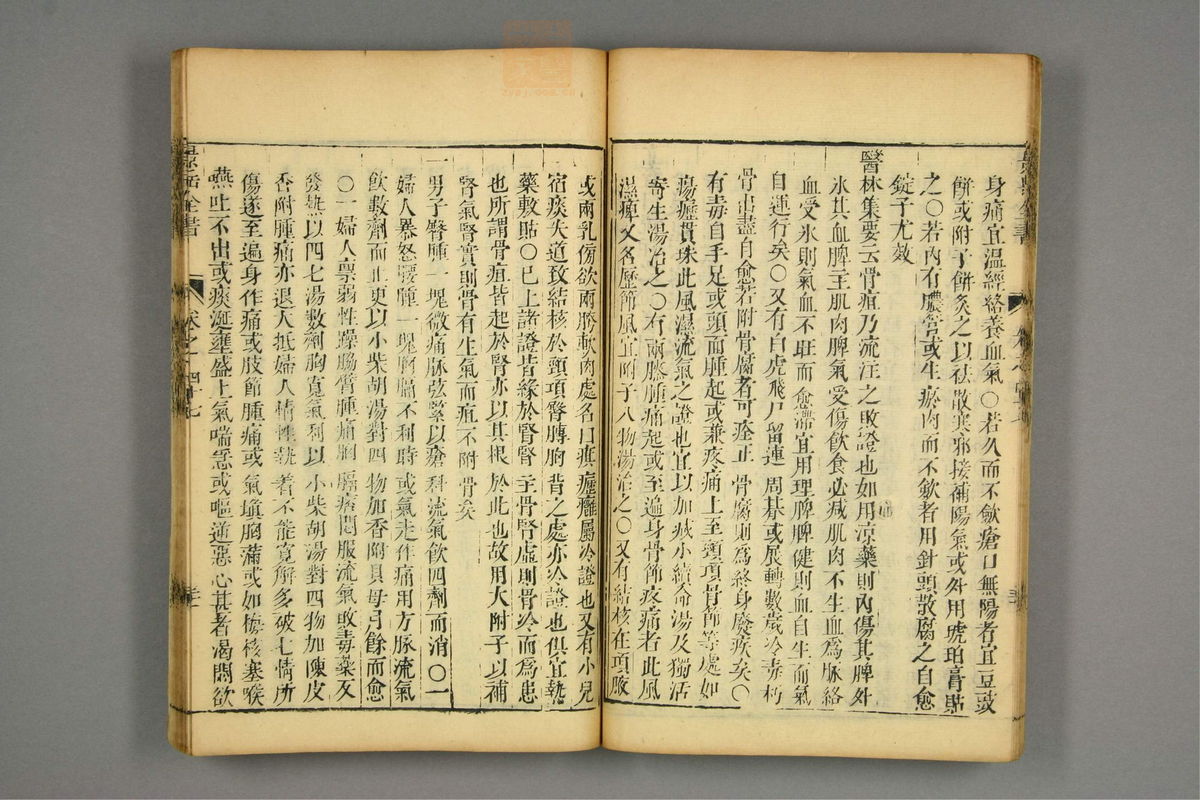 身痛宜温經絡養血氣〇若久而不斂瘡口無陽者宜豆豉
餅或附子餅灸之以祛散寒邪接補陽氣或外用琥珀膏貼
之〇若内有膿管或生瘀肉而不斂者用針頭散腐之自愈
錠子尤效
醫林集要云骨疽乃流注之敗證也如用凉藥則内傷其脾外
氷其血脾主肌肉脾氣受傷飲食必减肌肉不生血爲脉絡
血受氷則氣血不旺而愈滯宜用理脾脾健則血自生而氣
自運行矣〇又有白虎飛尸留連周朞或展轉數歲冷毒朽
骨出盡自愈若附骨腐者可痊正骨腐則爲終身廢疾矣〇
有毒自手足或頭面腫起或兼疼痛上至頸項骨節等處如
癘癧貫珠此風濕流氣之證也宜以加减小續命湯及獨活
寄生湯治之〇有兩膝腫痛起或至遍身骨節疼痛者此風
濕痺又名歷節風宜附子八物湯治之〇又有結核在項腋
或兩乳傍或兩胯軟肉處名曰瘰癧癰屬冷證也又有小兒
宿痰失道致結核於頸項臂膊胸背之處亦冷證也俱宜熱
藥敷貼〇已上諸證皆緣於腎腎主骨腎虚則骨冷而爲患
也所謂骨疽皆起於腎亦以其根於此也故用大附子以補
腎氣腎實則骨有生氣而疽不附骨矣
一男子臀腫一塊微痛脉弦緊以瘡科流氣飲四劑而消〇一
婦人暴怒腰腫一塊胸膈不利時或氣走作痛用方脉流氣
飲數劑而止更以小柴胡湯對四物加香附貝母月餘而愈
〇一婦人禀弱性躁腸臂腫痛胸膈痞悶服流氣敗毒藥反
發熱以四七湯數劑胸寛氣利以小柴胡湯對四物加陳皮
香附腫痛亦退大抵婦人情性執着不能寛解多破七情所
傷遂至遍身作痛或肢節腫痛或氣塡胸滿或如梅核塞喉
嚥吐不出或痰涎壅盛上氣喘急或嘔逆惡心甚者渴悶欲
卷之四十七